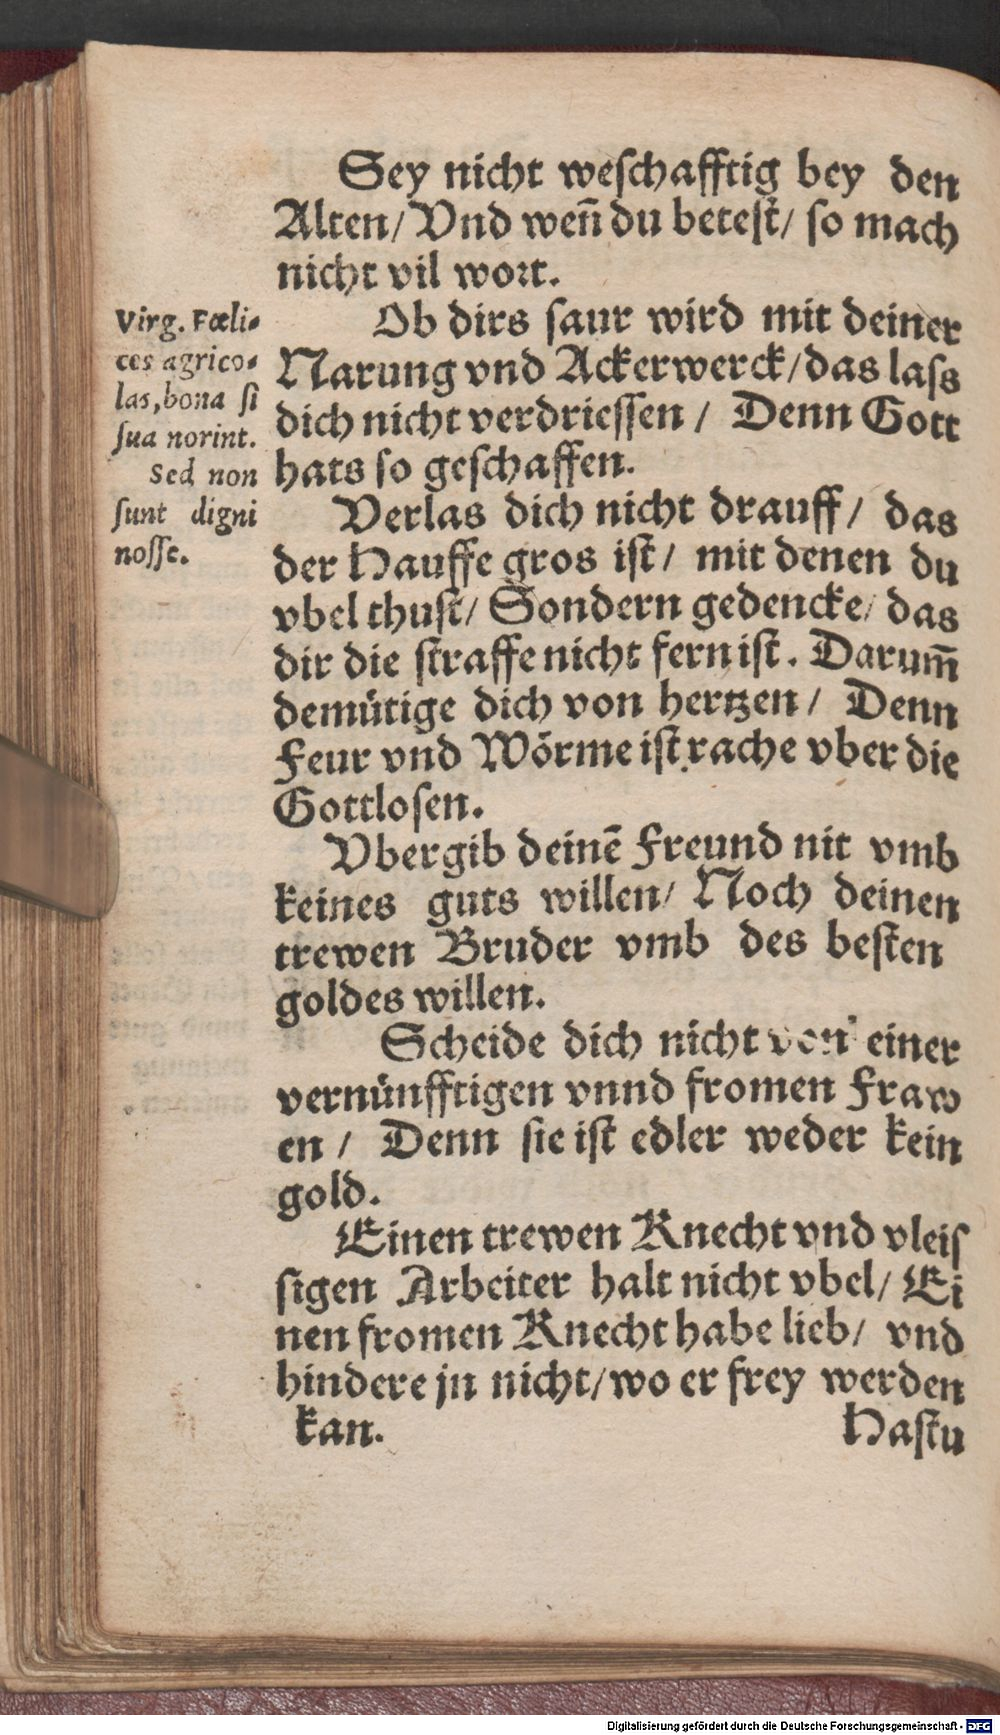 Sey nicht weſchafftig bey den
Alten/ Vnd weñ du beteſt/ ſo mach
nicht vil wort.
Ob dirs ſaur wird mit deiner
Narung vnd Ackerwerck/ das laſs
dich nicht verdrieſſen / Denn Gott
hats ſo geſchaffen.
Verlas dich nicht drauff/ das
der Hauffe gros iſt/ mit denen du
vbel thuſt/ Sondern gedencke/ das
dir die ſtraffe nicht fern iſt. Darum̃
demütige dich von hertzen/ Denn
Feur vnd Wörme iſt rache vber die
Gottloſen.
Vbergib deinē Freund nit vmb
keines guts willen/ Noch deinen
trewen Bruder vmb des beſten
goldes willen.
Scheide dich nicht von einer
vernünfftigen vnnd fromen Fraw
en / Denn ſie iſt edler weder kein
gold.
Einen trewen Knecht vnd vleiſ
ſigen Arbeiter halt nicht vbel/ Ei
nen fromen Knecht habe lieb/ vnd
hindere jn nicht/ wo er frey werden
kan. Haſtu
Virg. Fœli-
ces agrico-
las, bona ſi
ſua norint.
Sed non
ſunt digni
noſſe.
Digitalisierung gefördert durch die Deutsche Forschungsgemeinschaft - DFG